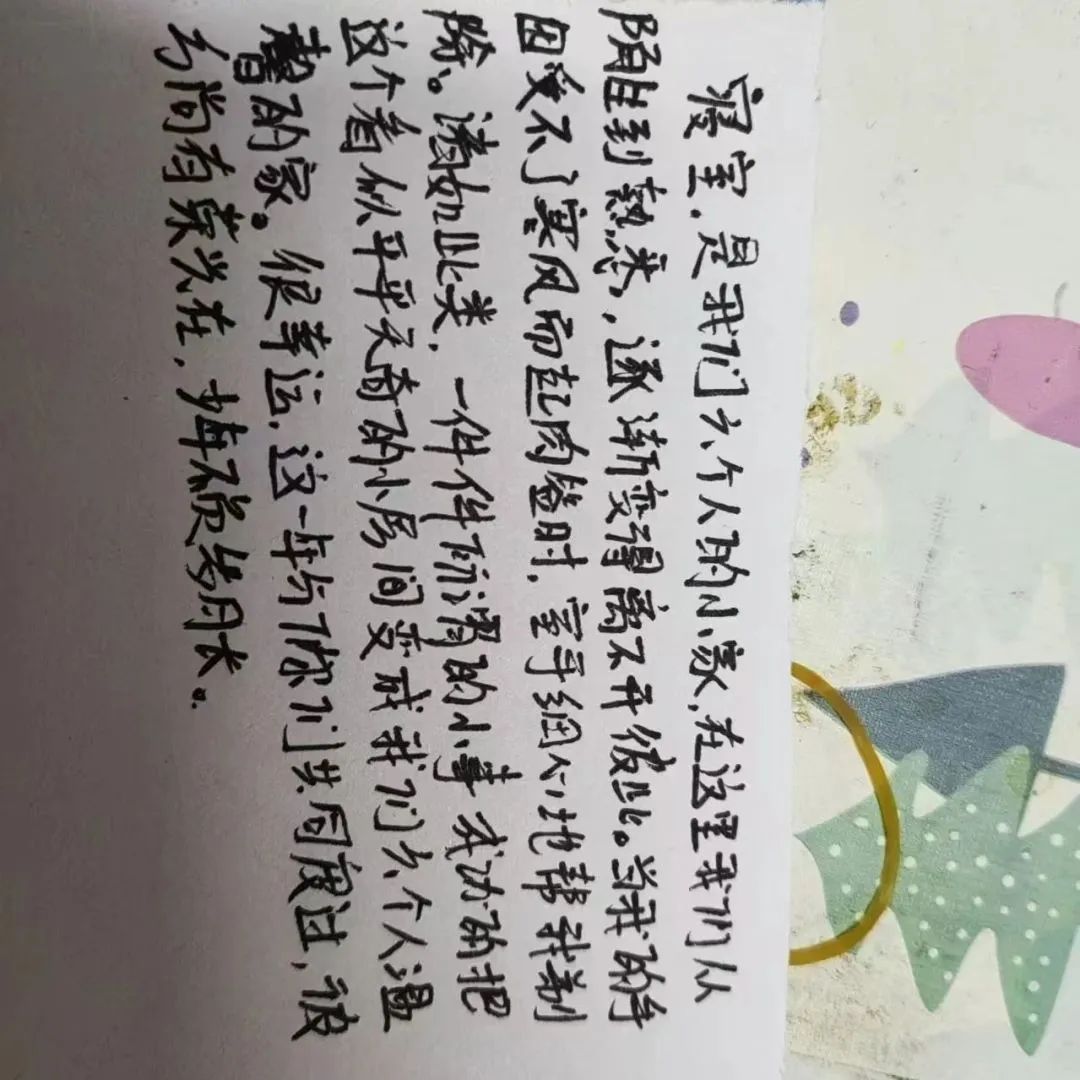 寝室,是我们六个人的小家,在这里我们从
陌生到熟悉,逐渐变得离不开彼此。当我的手
因受不了寒风而起肉签时,室手细心地帮我剃
除。诸如此类,一件件所谓的小事成功的把
这个看似平平无奇的小房间变成我们六个人温
馨的家。很幸运,这一年与你们共同度过,
尚有荣光在,少年不负岁月长。